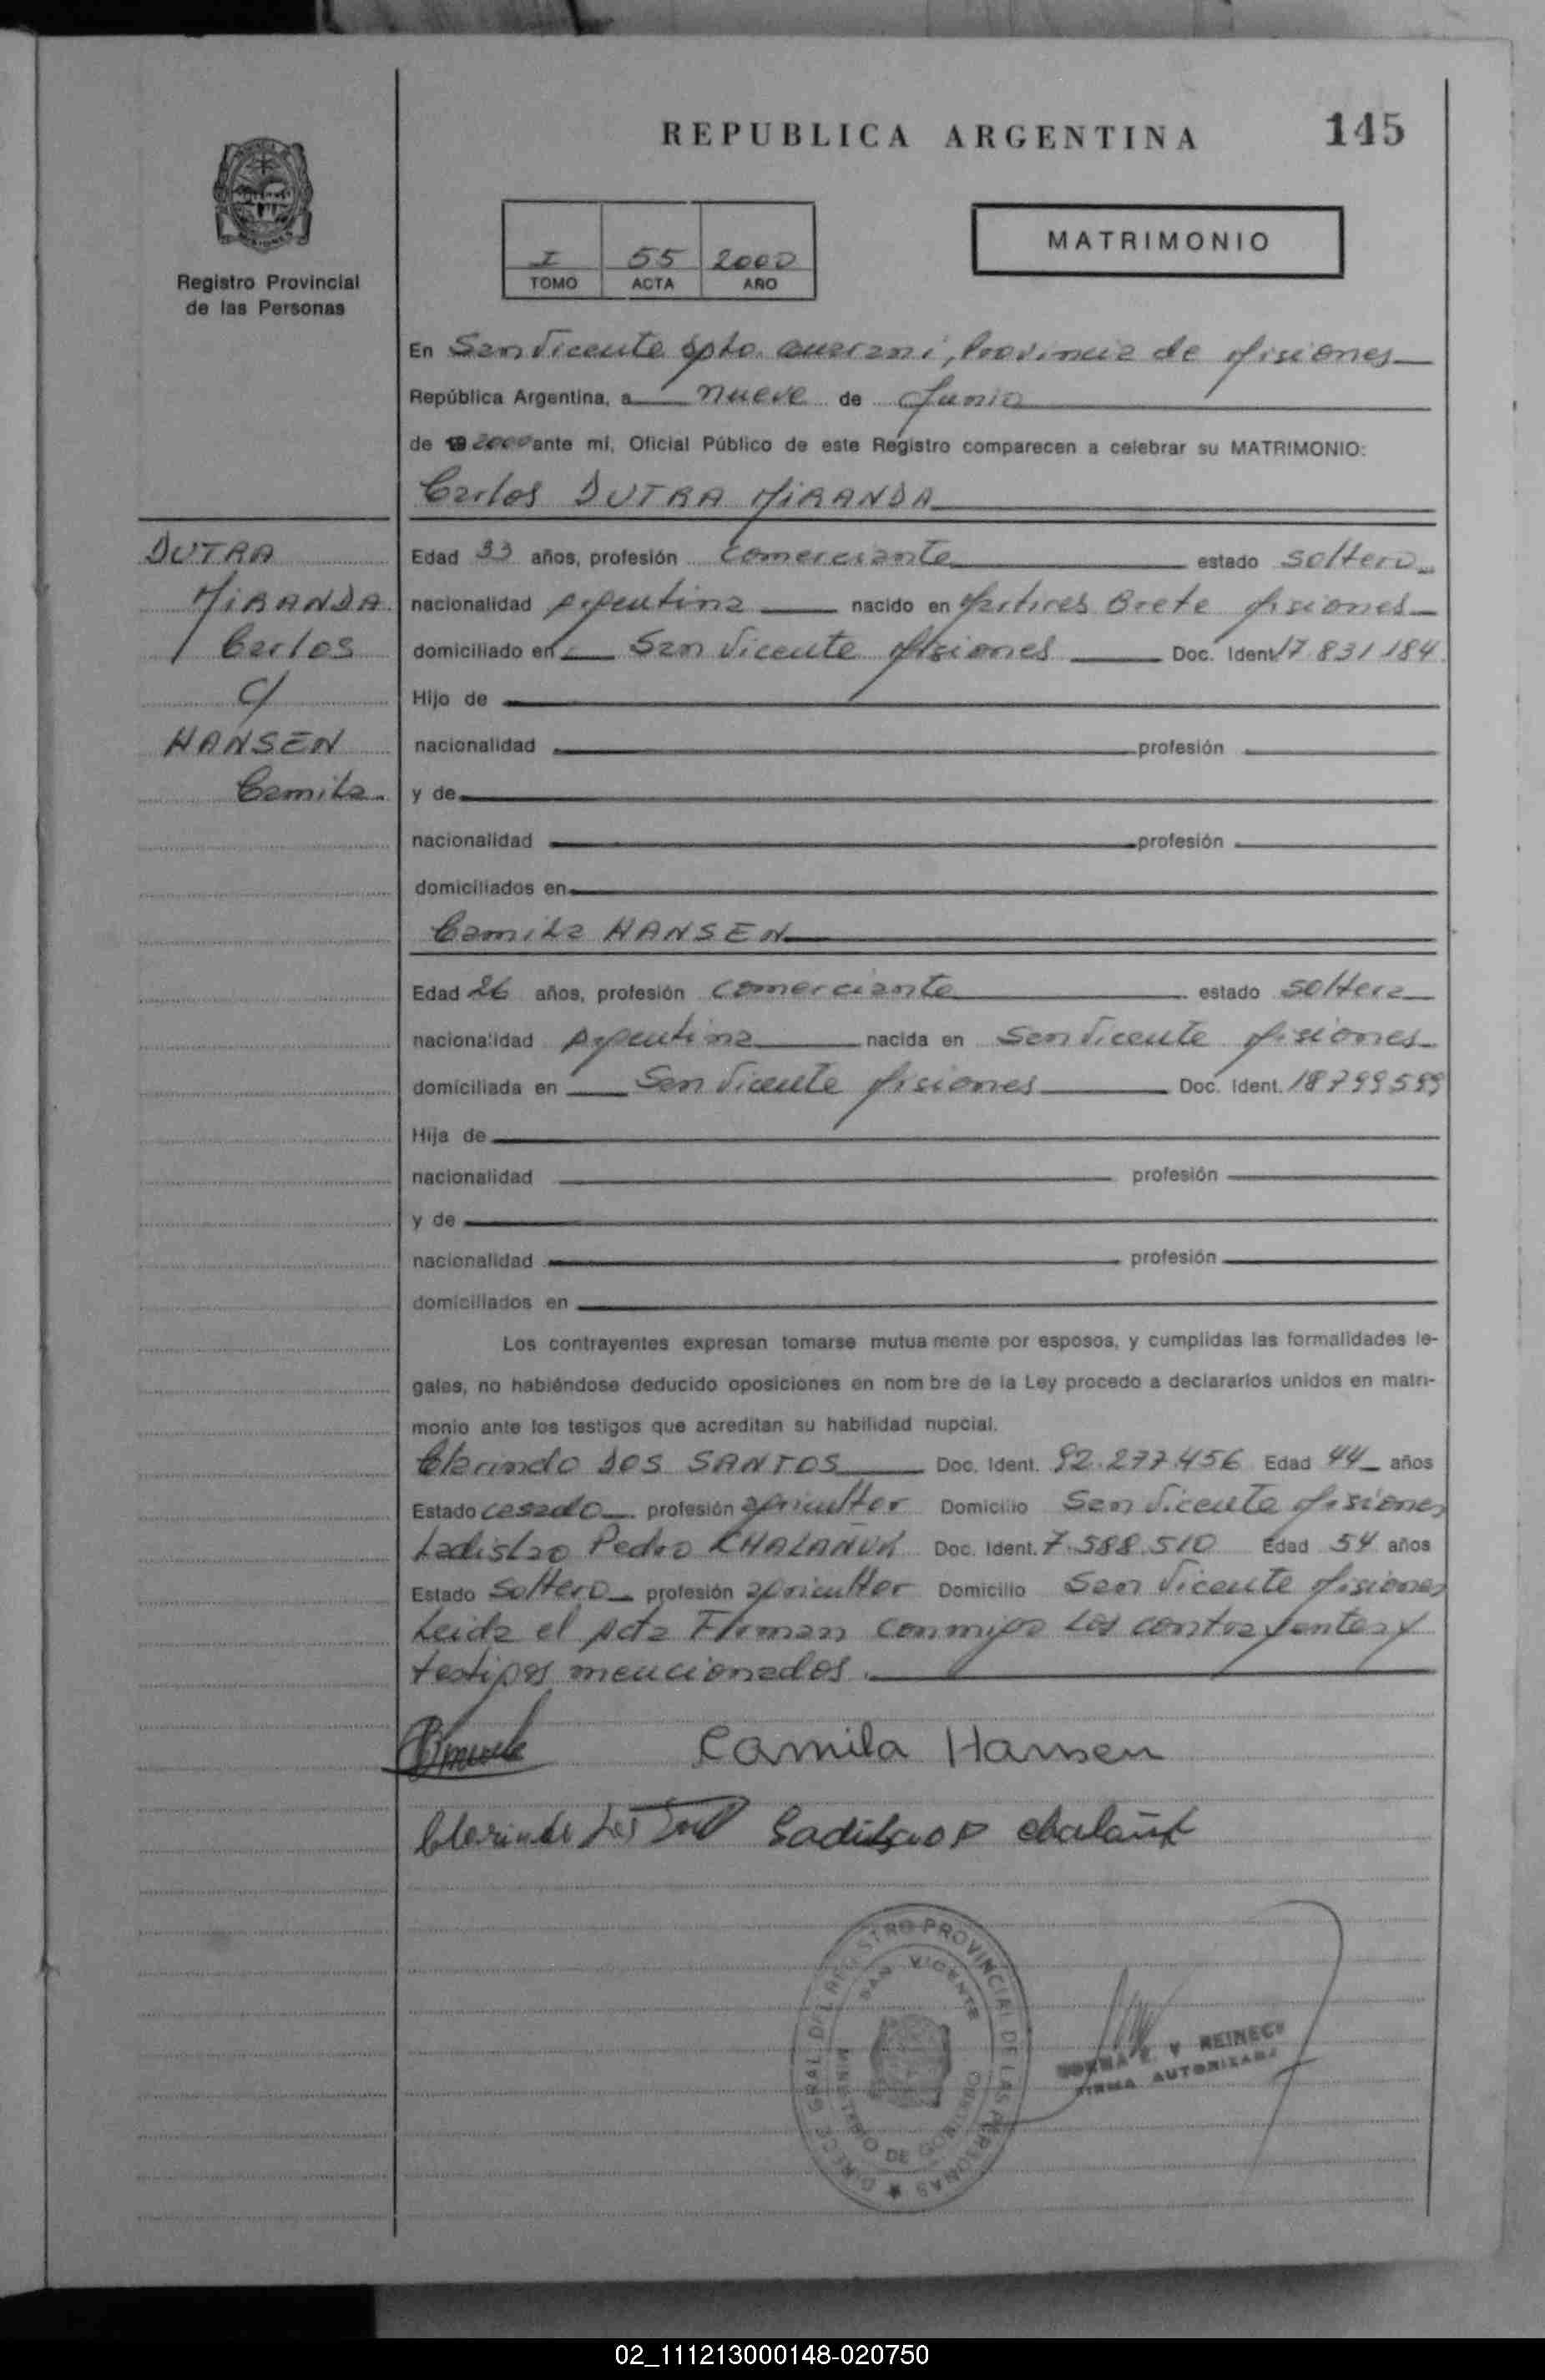 REPUBLICA ARGENTINA 145
MATRIMONIO
I 55 2000
TOMO ACTA AÑO
Registro Provincial
de las Personas
En San Vicente Dpto. Guarani, Provincia de Misiones
República Argentina, a nueve de Junio
de 19 2000 ante mí, Oficial Público de este Registro comparecen a celebrar su MATRIMONIO:
Carlos DUTRA MIRANDA
DUTRA
MIRANDA
Carlos
c/
HANSEN
Camila
Edad 33 años, profesión comerciante estado soltero
nacionalidad Argentina nacido en Martires Brete Misiones
domiciliado en San Vicente Misiones Doc. Ident. 17 831 184
Hijo de
nacionalidad profesión
y de
nacionalidad profesión
domiciliados en
Camila HANSEN
Edad 26 años, profesión comerciante estado soltera
nacionalidad Argentina nacida en San Vicente Misiones
domiciliada en San Vicente Misiones Doc. Ident. 18799599
Hija de
nacionalidad profesión
y de
nacionalidad profesión
domiciliados en
Los contrayentes expresan tomarse mutua mente por esposos, y cumplidas las formalidades le-
gales, no habiéndose deducido oposiciones en nom bre de la Ley procedo a declararlos unidos en matri-
monio ante los testigos que acreditan su habilidad nupcial.
Clarindo DOS SANTOS Doc. Ident. 92.277.456 Edad 44 años
Estado casado profesión agricultor Domicilio San Vicente Misiones
Ladislao Pedro CHALAÑUK Doc. Ident. 7.588.510 Edad 54 años
Estado Soltero profesión agricultor Domicilio San Vicente Misiones
Leida el Acta Firman conmigo los contrayentes y
testigos mencionados.
Camila Hansen
Clarindo Dos Ladislao P chalañuk
DIRECC. GRAL. DEL REGISTRO PROVINCIAL DE LAS PERSONAS
SAN VICENTE
MINISTERIO DE GOBIERNO
V REINECK
FIRMA AUTORIZADA
02_111213000148-020750